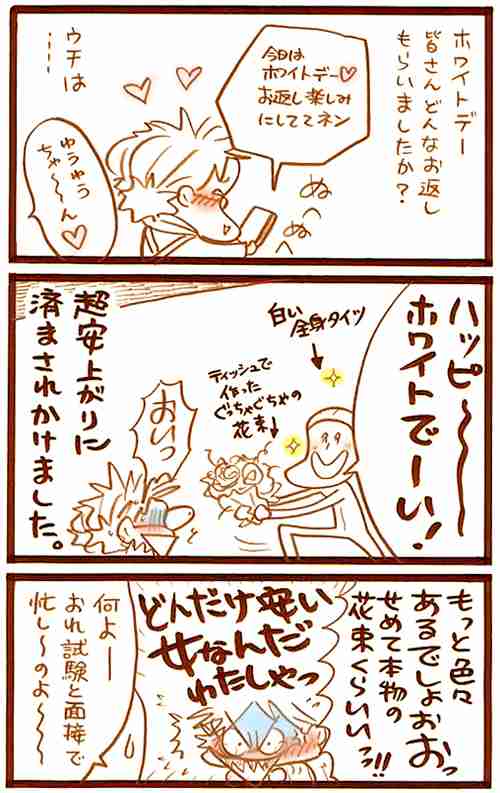 ホワイトデー
皆さんどんなお返し
もらいましたか？
今日は
ホワイトデー♡
お返し楽しみ
にしててネン
ウチは
……
ぬへ
ぬへ
ゆうゆう
ちゃ〜〜ん♡
ハッピ〜〜〜
ホワイトでーい！
白い
全身タイツ
ティッシュで
作った
ぐちゃぐちゃの
花束
おいっ
超安上がりに
済まされかけました。
もっと色々
あるでしょおおっ
せめて本物の
花束くらいいっっ!!
どんだけ安い
女なんだ
わたしゃっ
何よー
おれ試験と面接で
忙し〜のよ〜〜〜